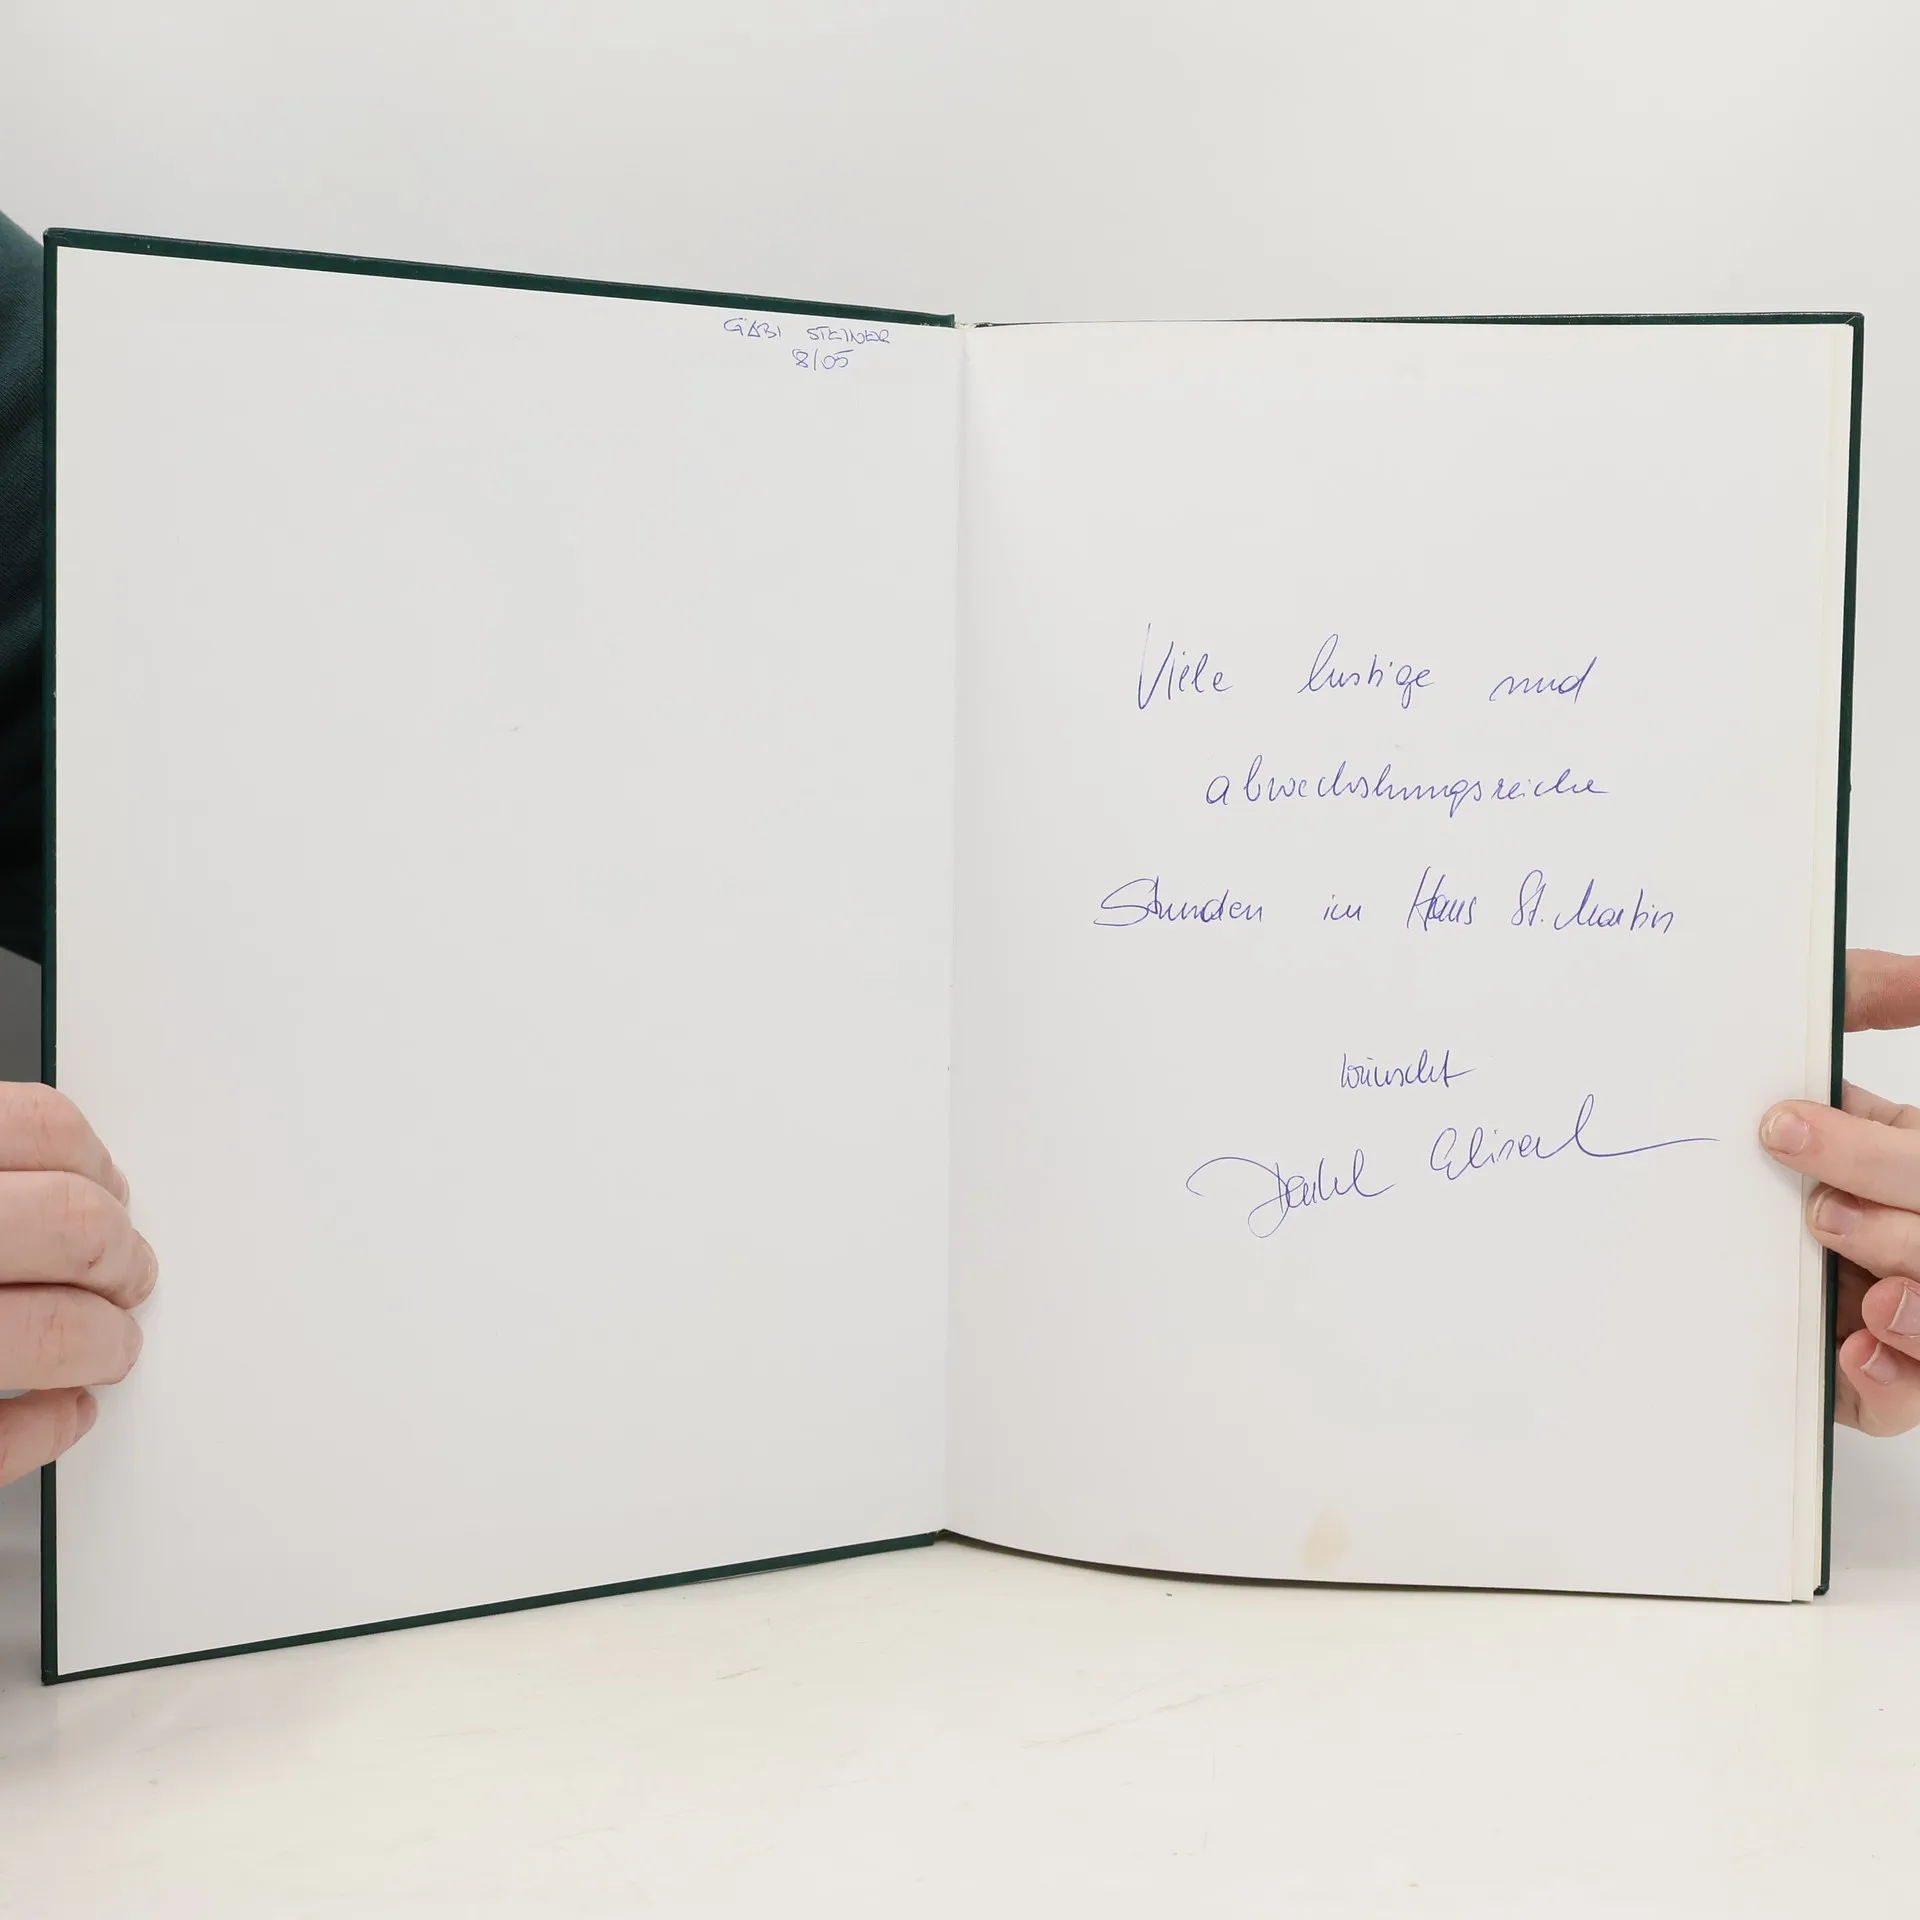 GABI STEINER
8/05
Viele lustige und
abwechslungsreiche
Stunden im Haus St. Martin
wünscht